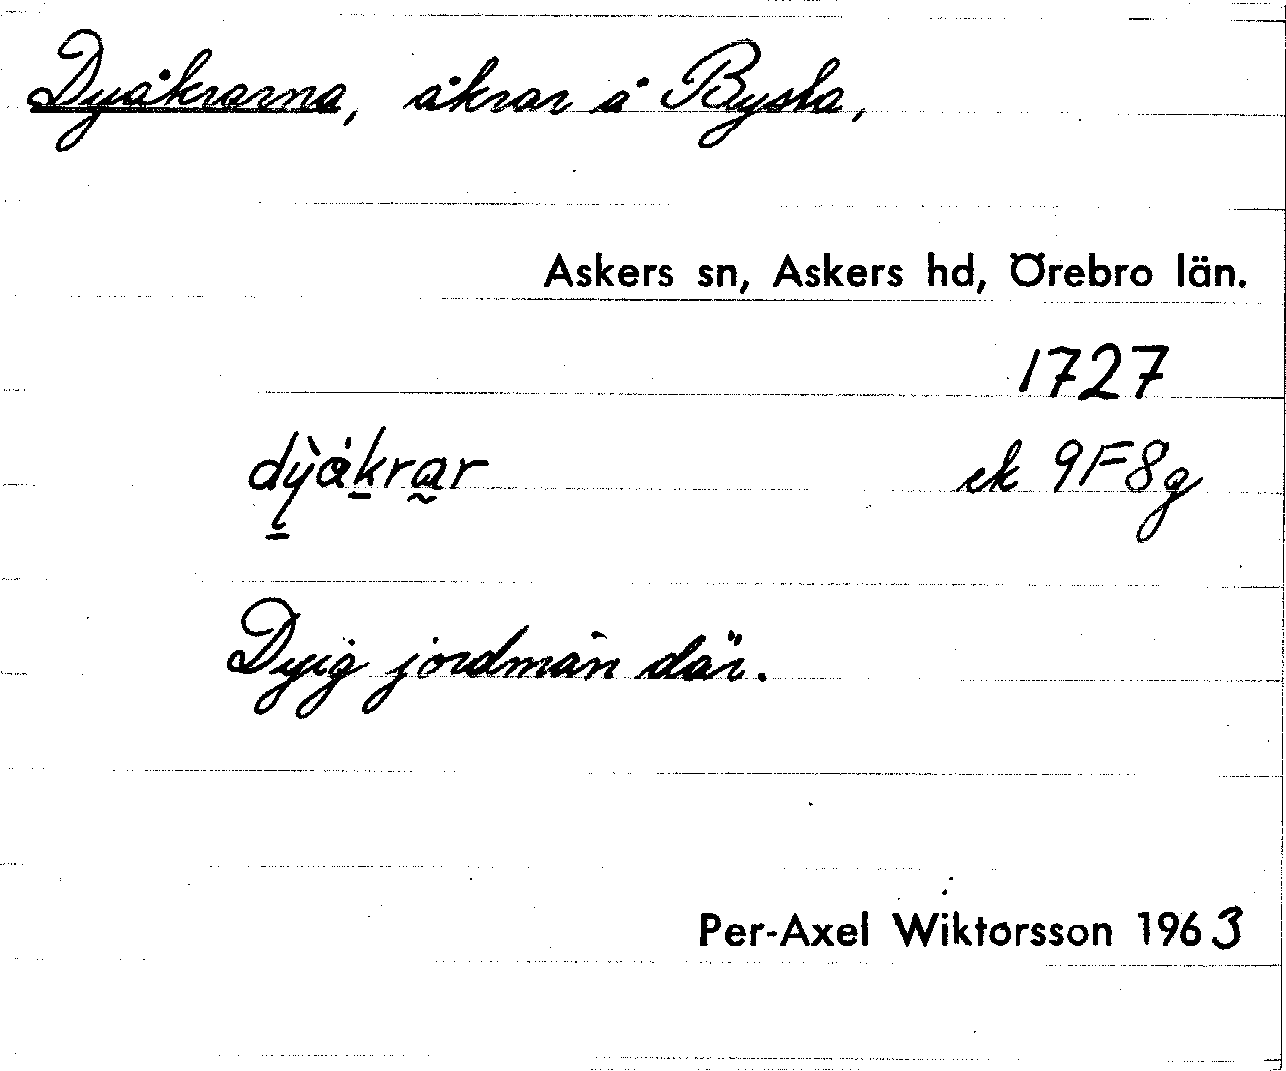 Dyåkrarna, åkrar å Bysta,
Askers sn, Askers hd, Örebro län.
1727
dyåkrar ek 9F8g
Dyig jordmån där.
Per-Axel Wiktorsson 1963